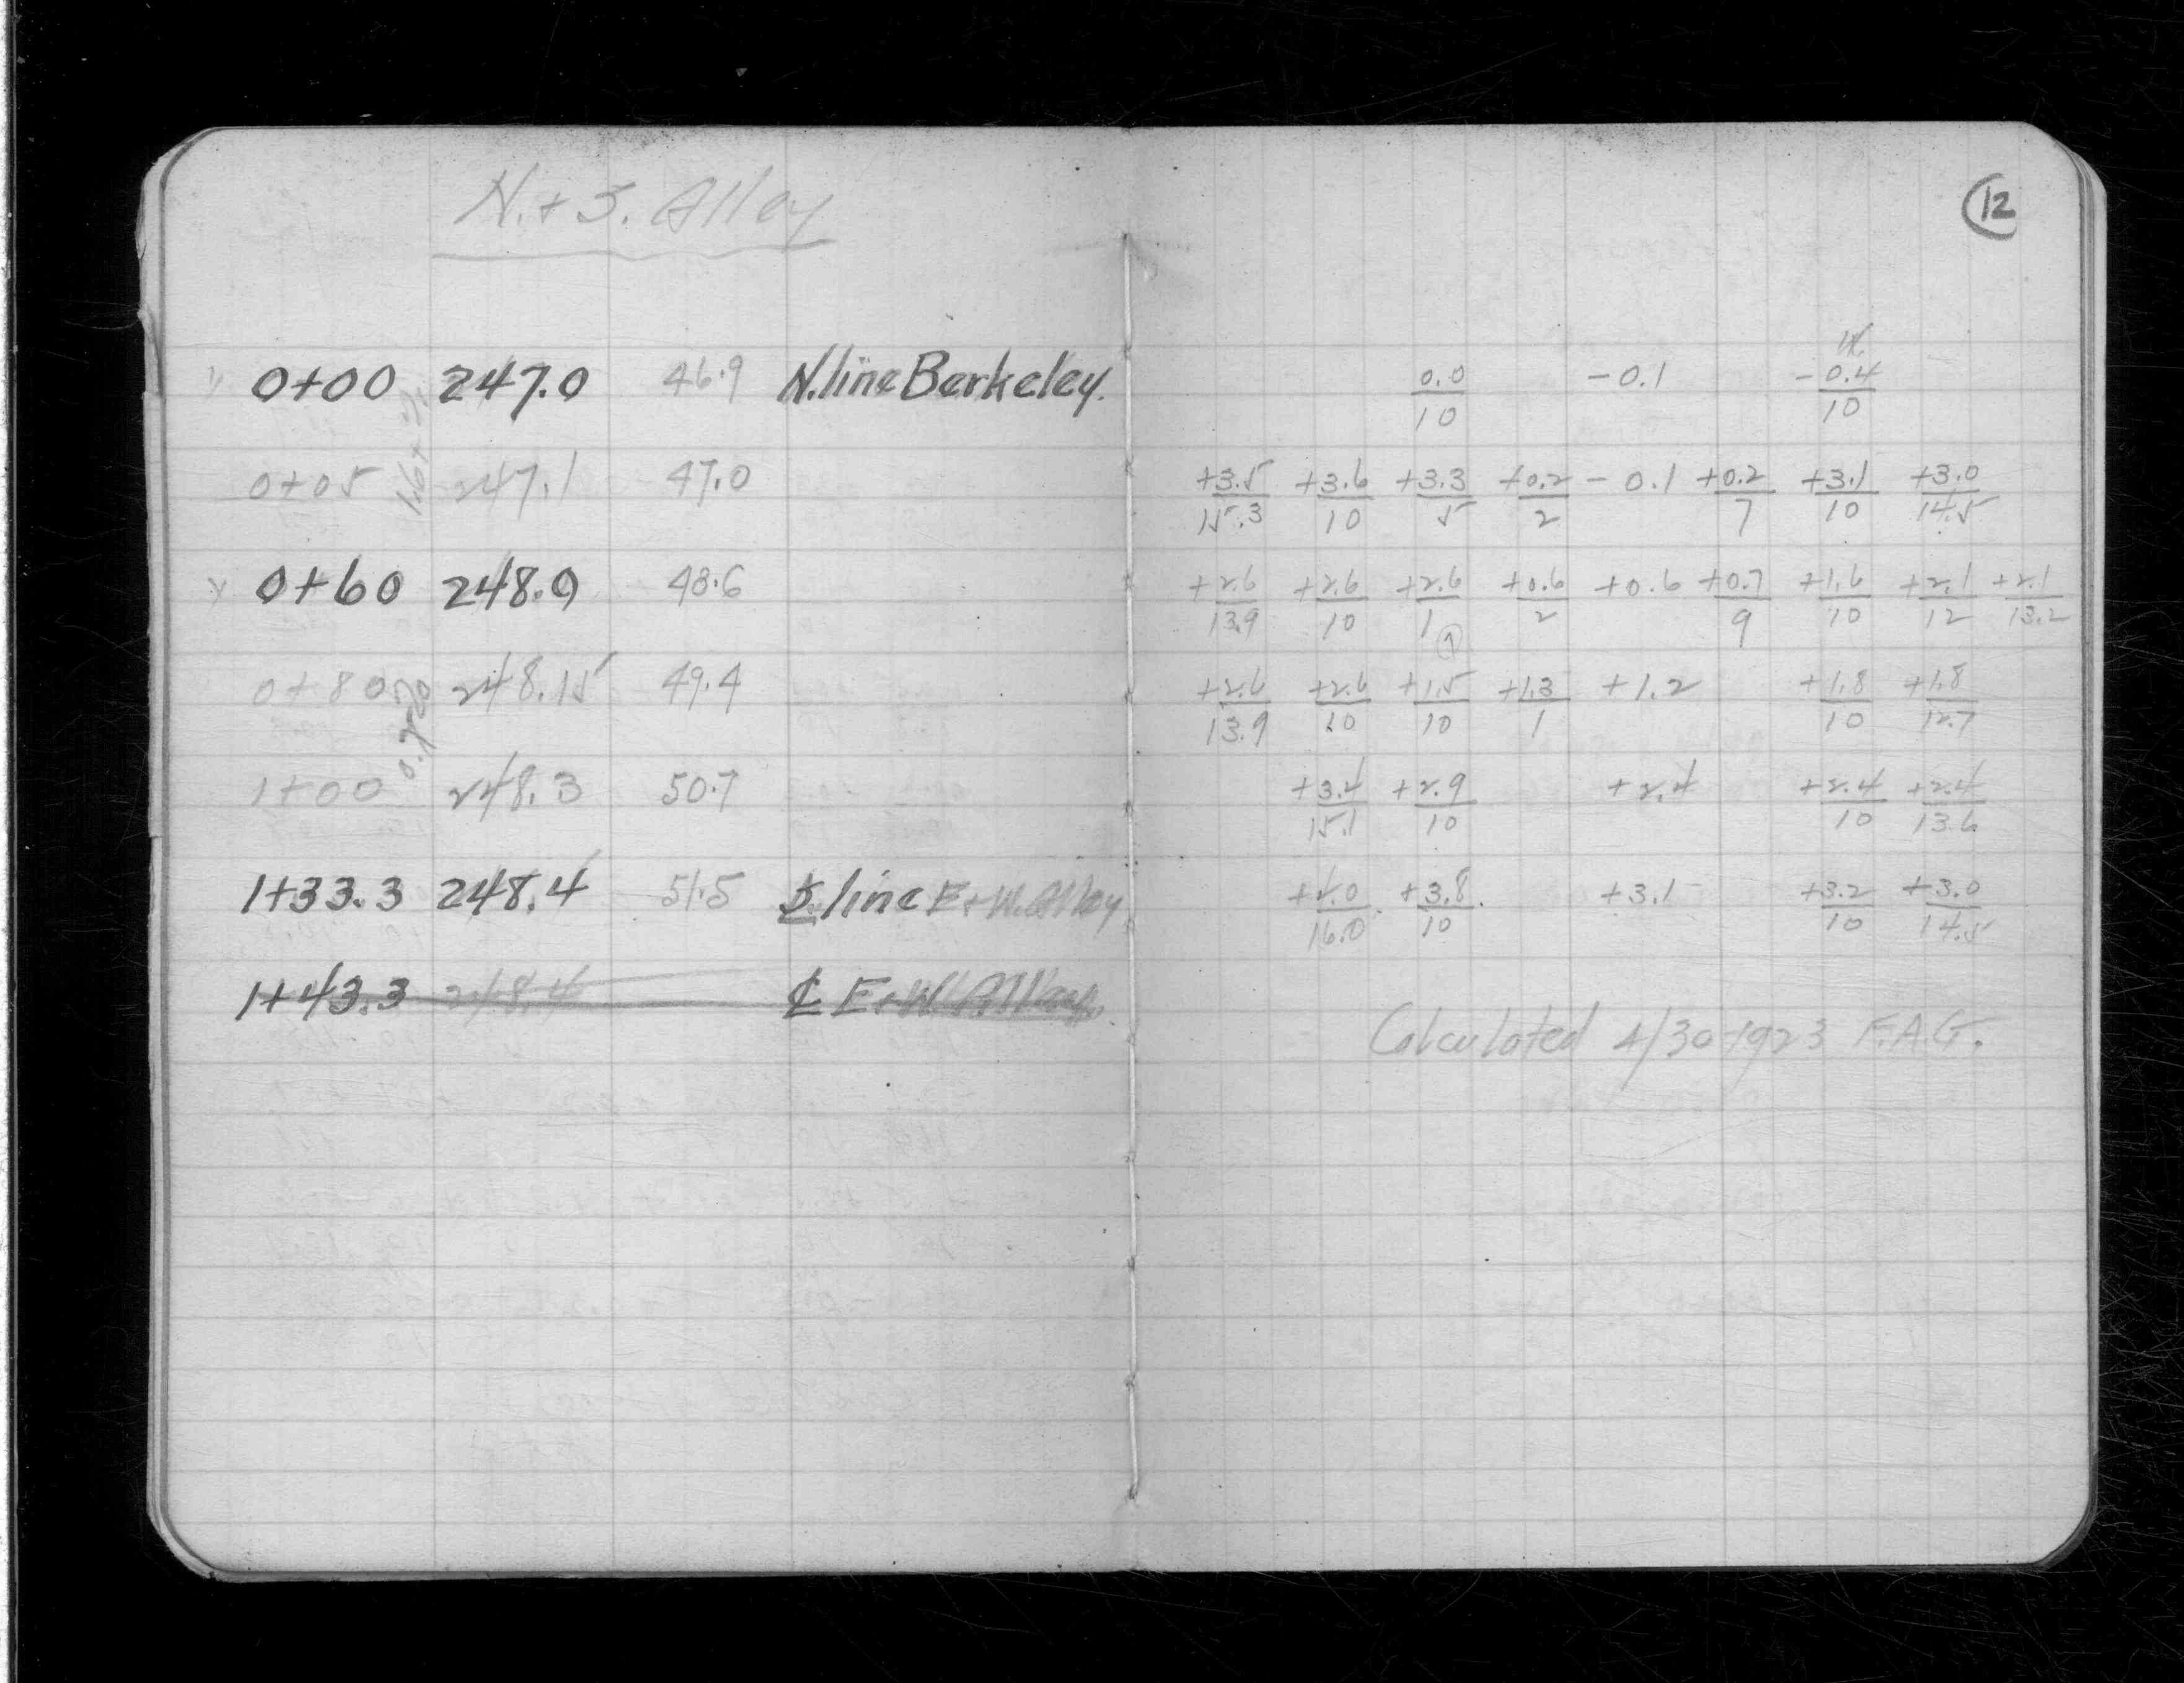 N. + S. Alley
12
0+00 247.0 46.9 N. line Berkeley. 0.0/10 -0.1 -0.4/10
0+05 247.1 47.0 +3.5/15.3 +3.6/10 +3.3/5 +0.2/2 -0.1 +0.2/7 +3.1/10 +3.0/14.5
0+60 248.0 48.6 +2.6/13.9 +2.6/10 +2.6/1 +0.6/2 +0.6 +0.7/9 +1.6/10 +2.1/12 +2.1/13.2
0+80 248.15 49.4 +2.6/13.9 +2.6/10 +1.5/10 +1.3/1 +1.2 +1.8/10 +1.8/12.7
1+00 248.3 50.7 +3.4/15.1 +2.9/10 +2.4 +2.4/10 +2.4/13.6
1+33.3 248.4 51.5 S. line E+W. Alley +4.0/16.0 +3.8/10 +3.1 +3.2/10 +3.0/14.5
1+43.3 248.4 ℄ E+W Alley
Calculated 4/30-1923 F.A.G.